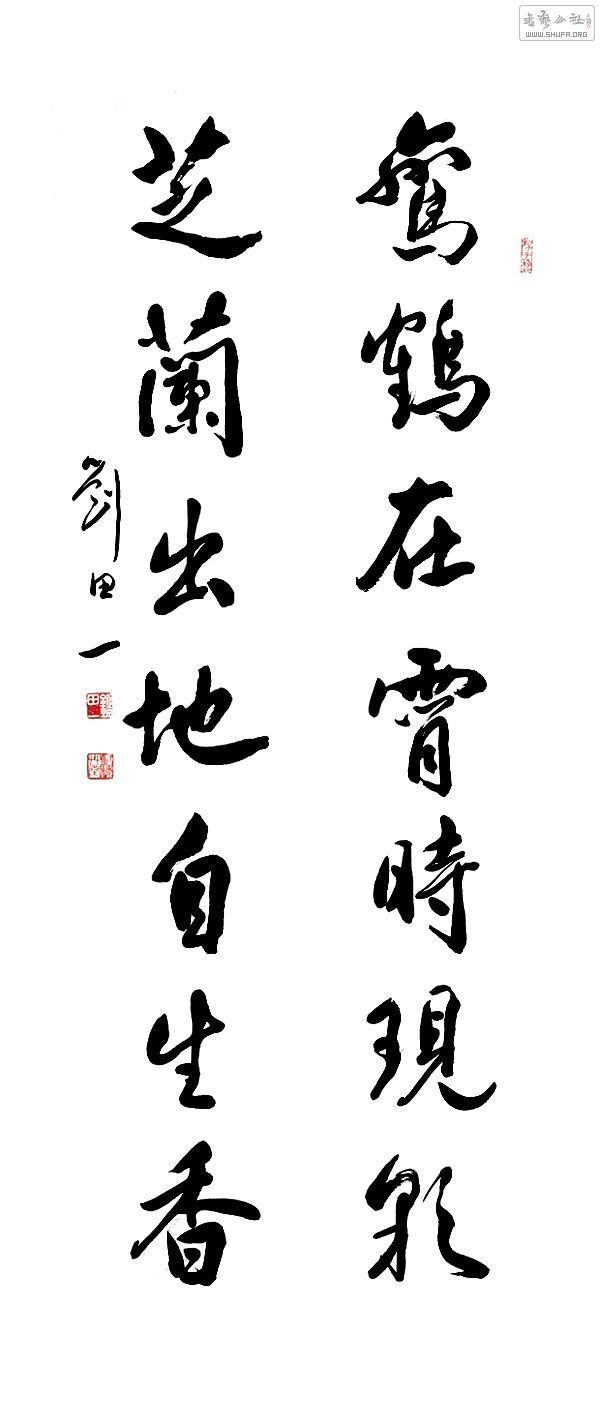 書藝公社
WWW.SHUFA.ORG
鸞鶴在霄時現彩
芝蘭出地自生香
劉田一